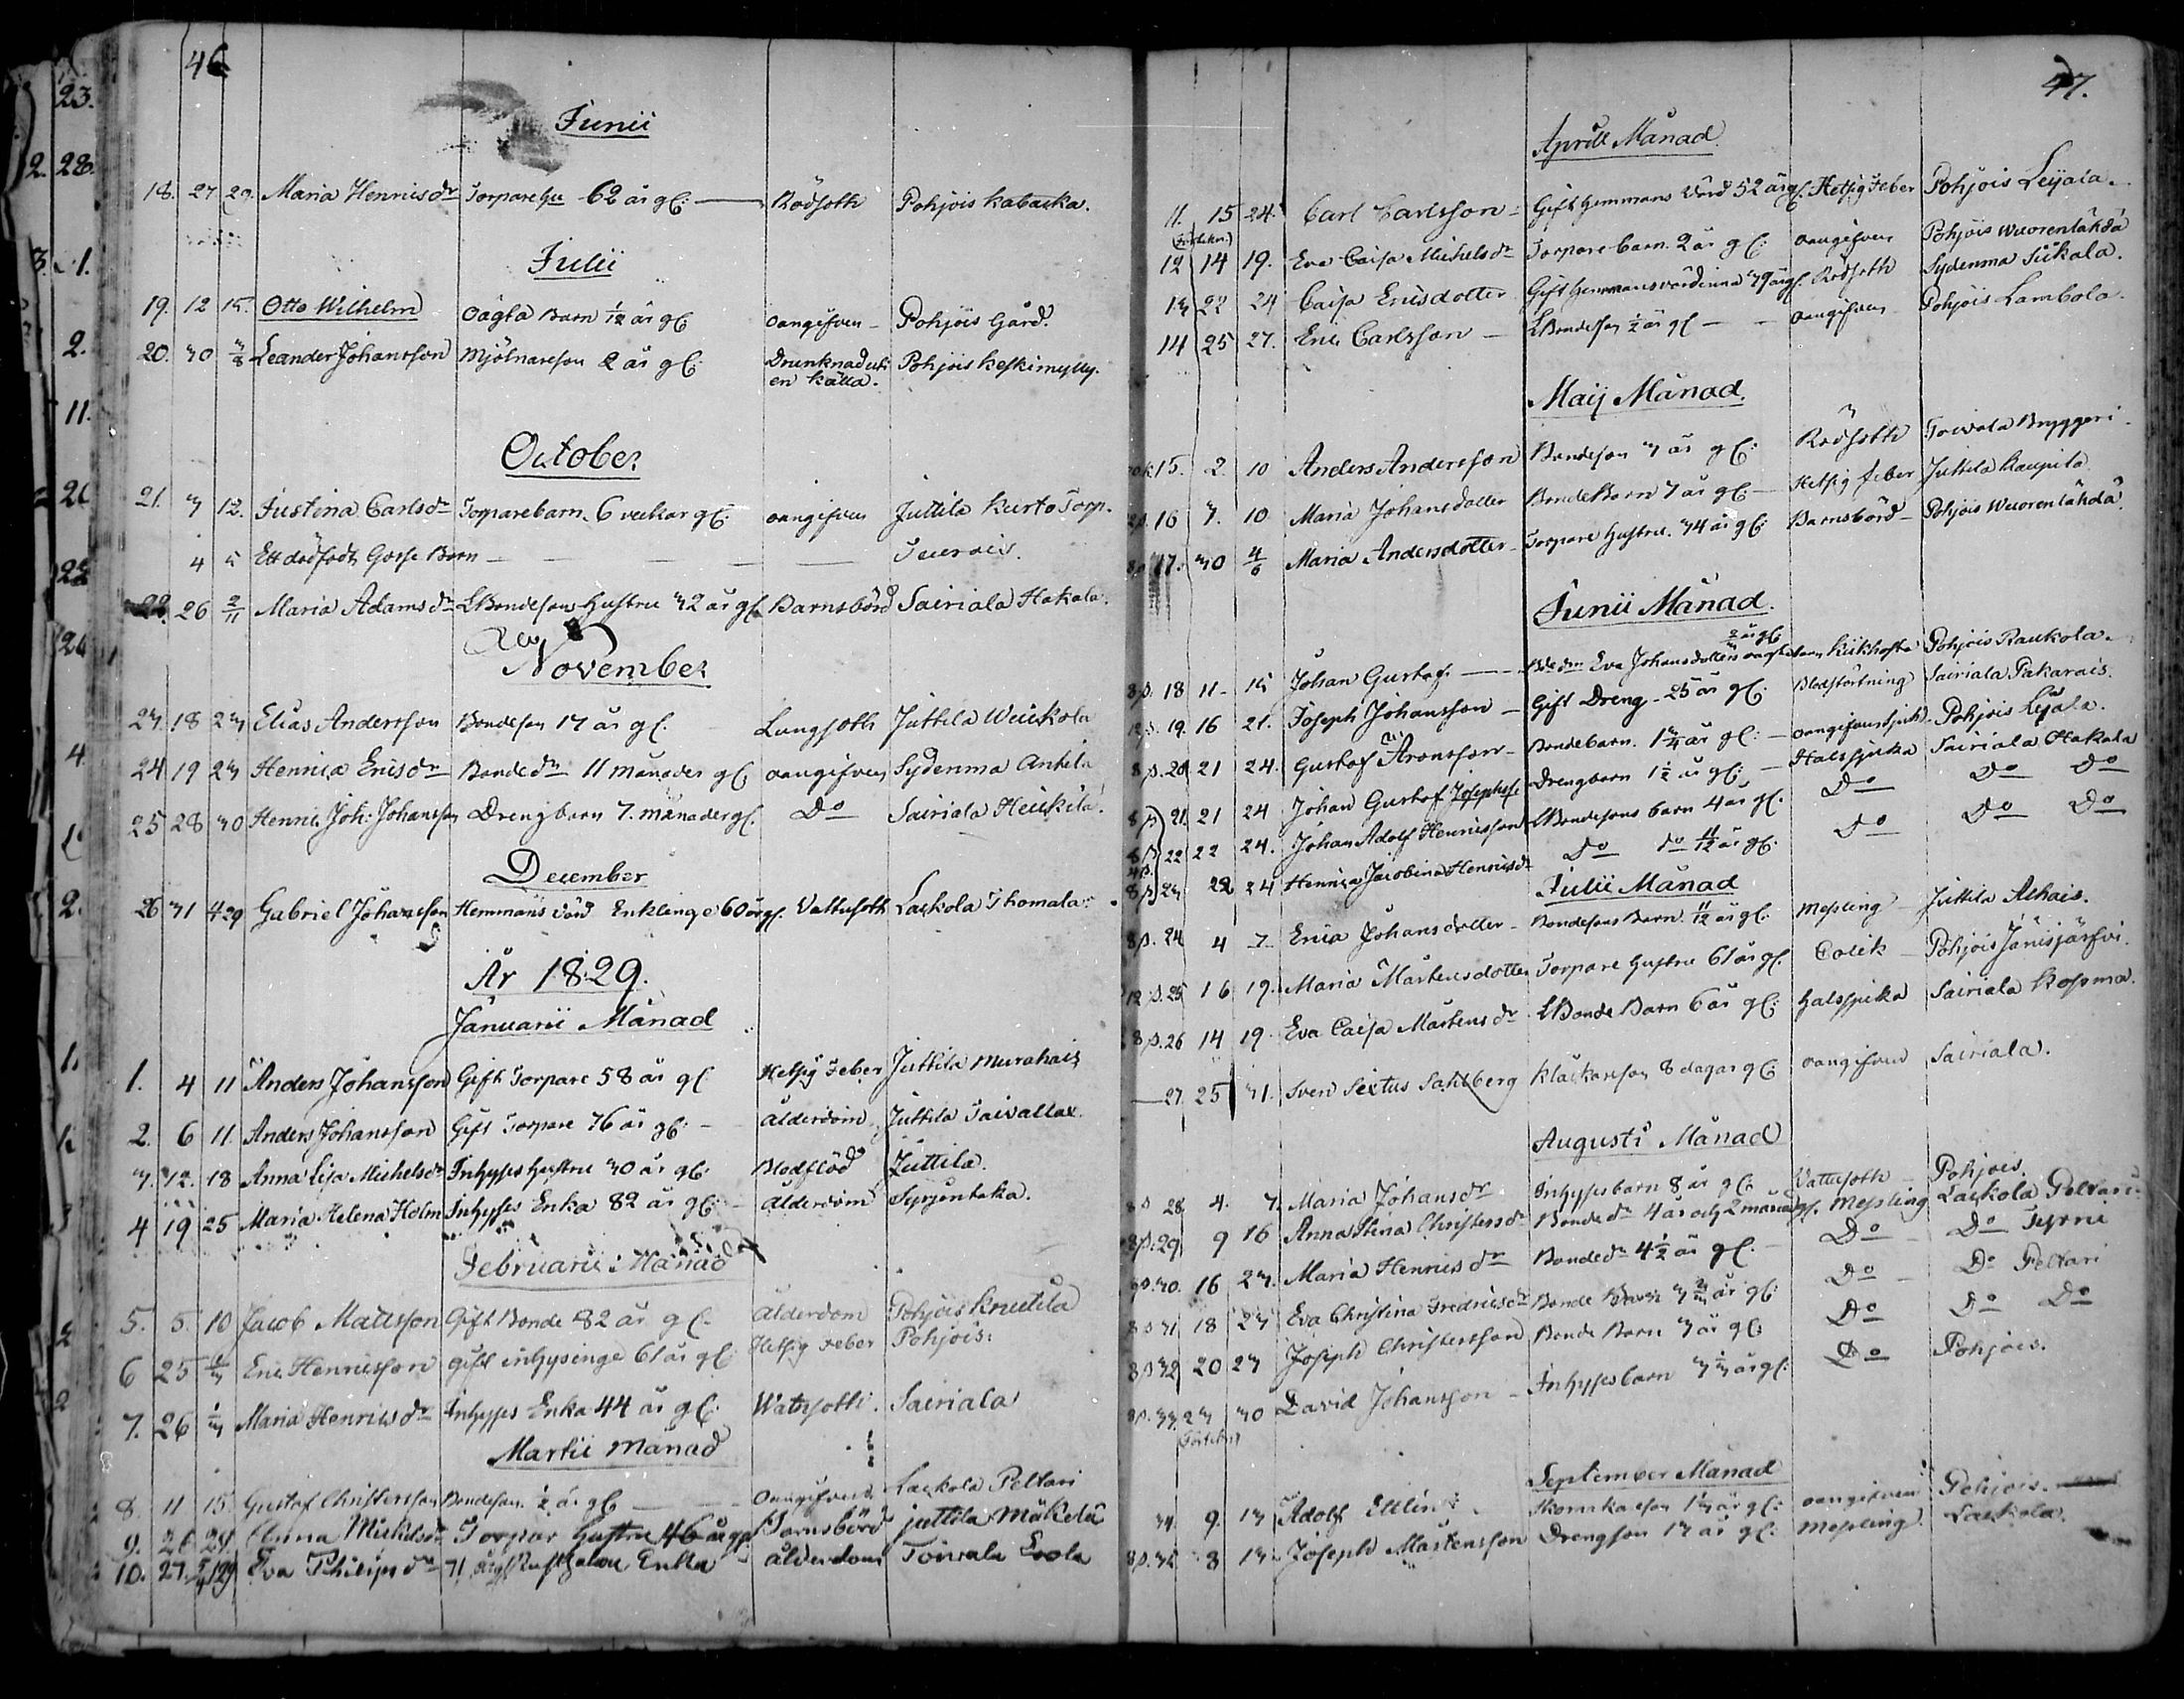 46
Junii
18. 27. 29. Maria Henricsdr Torpare hu 62 år gl: Rödsoth Pohjois Kabacka.
Julii
19. 12 15. Otto Wilhelm Oägta Barn 1/12 år gl: oangifven Pohjois Gård.
20. 30 3/8 Leander Johansson Mjölnareson 2 år gl: Drunknad uti Pohjois Keskimylly.
en källa.
October
21. 3 12. Justina Carlsdr Torparebarn 6 veckor gl: oangifven Juttila Kurto Torp.
4 5 Ett dödfödt Gosse Barn
22. 26 2/11 Maria Adamsdr LBondesons Hustru 32 år gl. Barnsbörd Sairiala Hakala.
November
23. 18 23 Elias Andersson Bondeson 13 år gl. Lungsoth Juttila Weickola
24 19 23 Henrica Ericsdr Bondedr 11 månader gl: oangifven Sydenma Anttila
25 28 30 Henric Joh: Johansson Drengbarn 7. månader gl. Do Sairiala Heickilä.
December
26 31 4 29 Gabriel Johansson Hemmans värd Enklinge 60 år gl. Vattusoth Laskola Thomala.
År 1829.
Januarii Månad
1. 4 11 Anders Johansson Gift Torpare 58 år gl: Hetsig Feber Juttila Murahais
2. 6 11. Anders Johansson Gift Torpare 76 år gl: Ålderdom Juttila Taivallax.
3. 12. 18 Anna Lisa Michelsdr Inhyses hustru 30 år gl: Blodflöd Juttila.
4 19 25 Maria Helena Holm Inhyses Enka 82 år gl: Ålderdom Syrjentaka.
Februarii Månad
5. 5. 10 Jacob Mattsson Gift Bonde 82 år gl: Ålderdom Pohjois Knuutila
6 25 1/3 Eric Henricsson gift inhysinge 61 år gl: Hetsig Feber Pohjois.
7. 26 1/3 Maria Henricsdr Inhyses Enka 44 år gl: Watusoth. Sairiala
Martii månad
8. 11 15. Gustaf Christersson Bondeson 1/2 år gl: Oangifven Laskola Peltari
9. 26 29 Anna Michelsdr Torpar hustru 46 år gl: Barnsbörd juttila Mäkelä
10. 27. 5/4 129 Eva Philipsdr 71 årgl Rusthålare Enka ålderdom Toivala Eerola
47.
Aprill Månad
11. 15 24. Carl Carlsson Gift Hemmans Värd 52 år gl. Hetsig Feber Pohjois Leijala.
12 14 19. Eva Caisa Michelsdr Torpare barn. 2 år gl: oangifven Pohjois Wuorenlähdä
13 22 24 Caisa Ericsdotter Gift Hemmansvärdinna 39 år gl. Rödsoth Sydenma Siikala.
14 25 27. Eric Carlsson LBondeson 1/2 år gl oangifven Pohjois Lambola.
Maij Månad.
15. 2. 10 Anders Andersson Bondeson 3 år gl: Rödsoth Toivola Bryggeri.
16 7. 10 Maria Johansdotter Bonde Barn 7 år gl: Hetsig feber Juttila Kaupila
17. 30 4/6 Maria Andersdotter Torpare hustru. 34 år gl: Barnsbörd Pohjois Wuorenlähdä.
Junii Månad.
8 p. 18 11 15 Johan Gustaf Eva Johansdotters oägta barn Kikhosta Pohjois Raukola.
12 p. 19. 16 21. Joseph Johansson Gift Dreng 25 år gl: Blodstörtning Sairiala Pakarais.
8 p. 20 21 24. Gustaf Aronsson Bondebarn. 1 3/4 år gl: oangifven sjukd. Pohjois Lejala.
8 p. 21. 21 24 Johan Gustaf Josephss Drengbarn 1 1/2 år gl: Halssjuka Sairiala Hakala
8 p. 22 22 24. Johan Adolf Henricsson LBondesons barn 4 år gl. Do Do Do
8 p. 23 22 24 Henrica Jacobina Henricsdr Do do 11/12 år gl: Do Do Do
Julii Månad
8 p. 24 4 7 Erica Johansdotter Bondesons Barn 11/12 år gl: Messling Juttila Alhais.
12 p. 25 16 19. Maria Mårtensdotter Torpare hustru 61 år gl. Colik Pohjois Jänisjärfvi.
8 p. 26 14 19. Eva Caisa Mårtensdr LBonde Barn 6 år gl: halssjuka Sairiala Kossma.
27. 25 31. Sven Sextus Sahlberg Klåckareson 8 dagar gl: oangifven Sairiala.
Augusti Månad
8 p 28 4. 7. Maria Johansdr Inhysesbarn 8 år gl: Vattusoth Pohjois.
8 p. 29 9 16 Anna Stina Christersdr Bondedr 4 år och 2 månad gl. Messling Laskola Peltari
8 p. 30. 16 23. Maria Henricsdr Bondedr 4 1/2 år gl. Do Do Tyrni
8 p 31 18 23 Eva Christina Fredricsdr Bonde Barn 3 2/3 år gl: Do Do Peltari
8 p 32 20 23 Joseph Christersson Bonde Barn 3 år gl: Do Do Do
8 p. 33. 23 30 David Johansson Inhysesbarn 3 1/3 år gl: Do Pohjois.
September Månad
34. 9. 13 Adolf Ettlin Skomakareson år gl: oangifven Pohjois.
8 p. 35 8 13 Joseph Mårtensson Drengson 13 år gl: Messling Laskola.